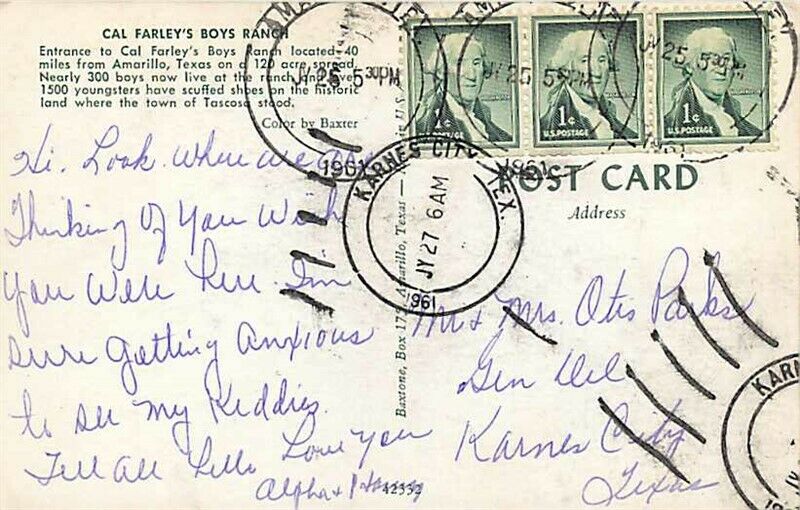 CAL FARLEY'S BOYS RANCH
Entrance to Cal Farley's Boys Ranch located 40
miles from Amarillo, Texas on a 120 acre spread.
Nearly 300 boys now live at the ranch and over
1500 youngsters have scuffed shoes on the historic
land where the town of Tascosa stood.
Color by Baxter
Hi. Look Where we are
Thinking Of You Wish
You Were Here. I'm
sure getting Anxious
to see my Kiddies.
Tell All Hello Love You
Alpha &
42332
Baxtone, Box 175, Amarillo, Texas
1¢
U.S. POSTAGE
1¢
U.S. POSTAGE
1¢
U.S. POSTAGE
JY 25 5 30 PM
1961
JY 25 5 30 PM
1961
JY 25 5 30 PM
1961
KARNES CITY, TEX.
JY 27 6 AM
1961
POST CARD
Address
Mr & Mrs. Otis Parks
Gen Del
Karnes City
Texas
KARN
JY
19